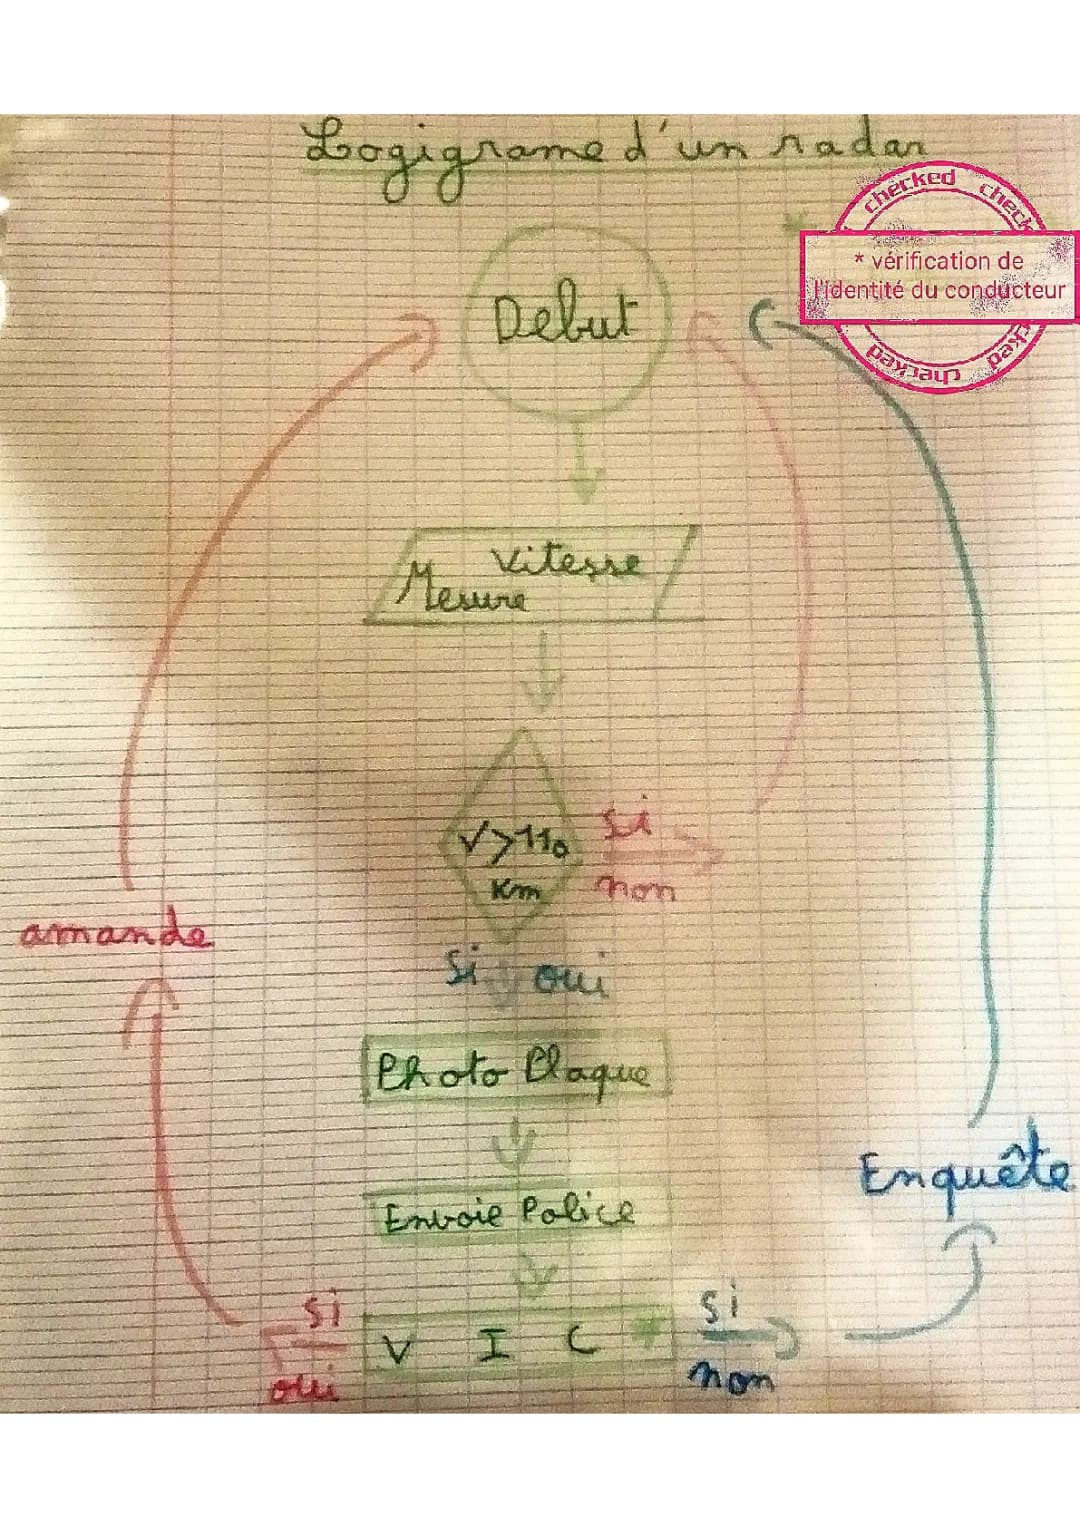 Logigrame d'un radar
checked check
* vérification de
l'identité du conducteur
checked checked
Debut
Vitesse
Mesure
V>110
Km
si
non
amande
Si oui
Photo Plaque
Envoie Police
Enquête
si
oui
V I C *
si
non